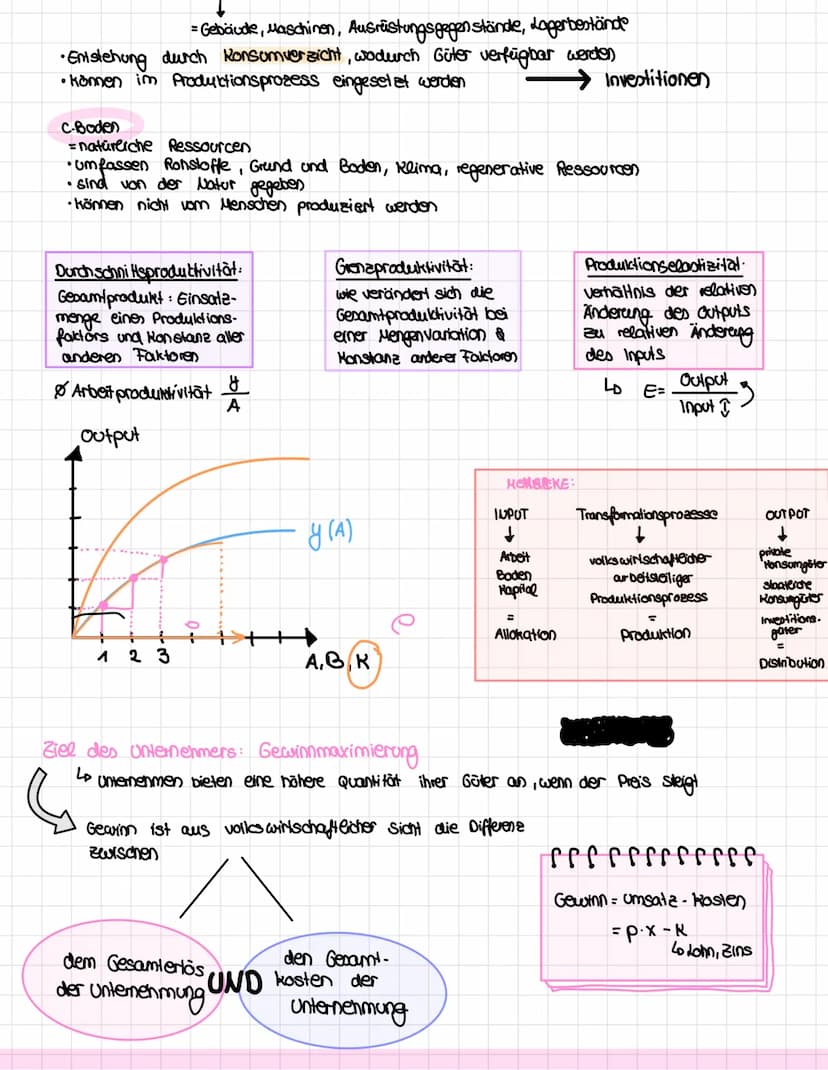 = Gebäude, Maschinen, Ausrüstungsgegenstände, Lagerbestände
· Entstehung durch Konsumverzicht, wodurch Güter verfügbar werden
· können im Produktionsprozess eingesetzt werden → Investitionen
C. Boden
= natürliche Ressourcen
· umfassen Rohstoffe, Grund und Boden, Klima, regenerative Ressourcen
· sind von der Natur gegeben
· können nicht vom Menschen produziert werden
Durchschnittsproduktivität:
Gesamtprodukt : Einsatz-
menge eines Produktions-
faktors und Konstanz aller
anderen Faktoren
Grenzproduktivität:
wie verändert sich die
Gesamtproduktivität bei
einer Mengenvariation &
Konstanz anderer Faktoren
Produktionselastizität:
Verhältnis der relativen
Änderung des Outputs
zu relativen Änderung
des Inputs
Ø Arbeitproduktivität y/A
↳ E = Output/Input ↑
Output
y(A)
1 2 3
A, B, K
e
INPUT
↓
Arbeit
Boden
Kapital
=
Allokation
Transformationsprozesse
↓
volkswirtschaftlicher
arbeitsteiliger
Produktionsprozess
=
Produktion
OUTPUT
↓
private
Konsumgüter
staatliche
Konsumgüter
Investitions-
güter
=
Distribution
Ziel des Unternehmers: Gewinnmaximierung
↳ Unternehmen bieten eine höhere Quantität ihrer Güter an, wenn der Preis steigt
Gewinn ist aus volkswirtschaftlicher Sicht die Differenz
zwischen
dem Gesamterlös
der Unternehmung
UND
den Gesamt-
kosten der
Unternehmung
Gewinn = Umsatz - Kosten
= p·x - K
↳ Lohn, Zins